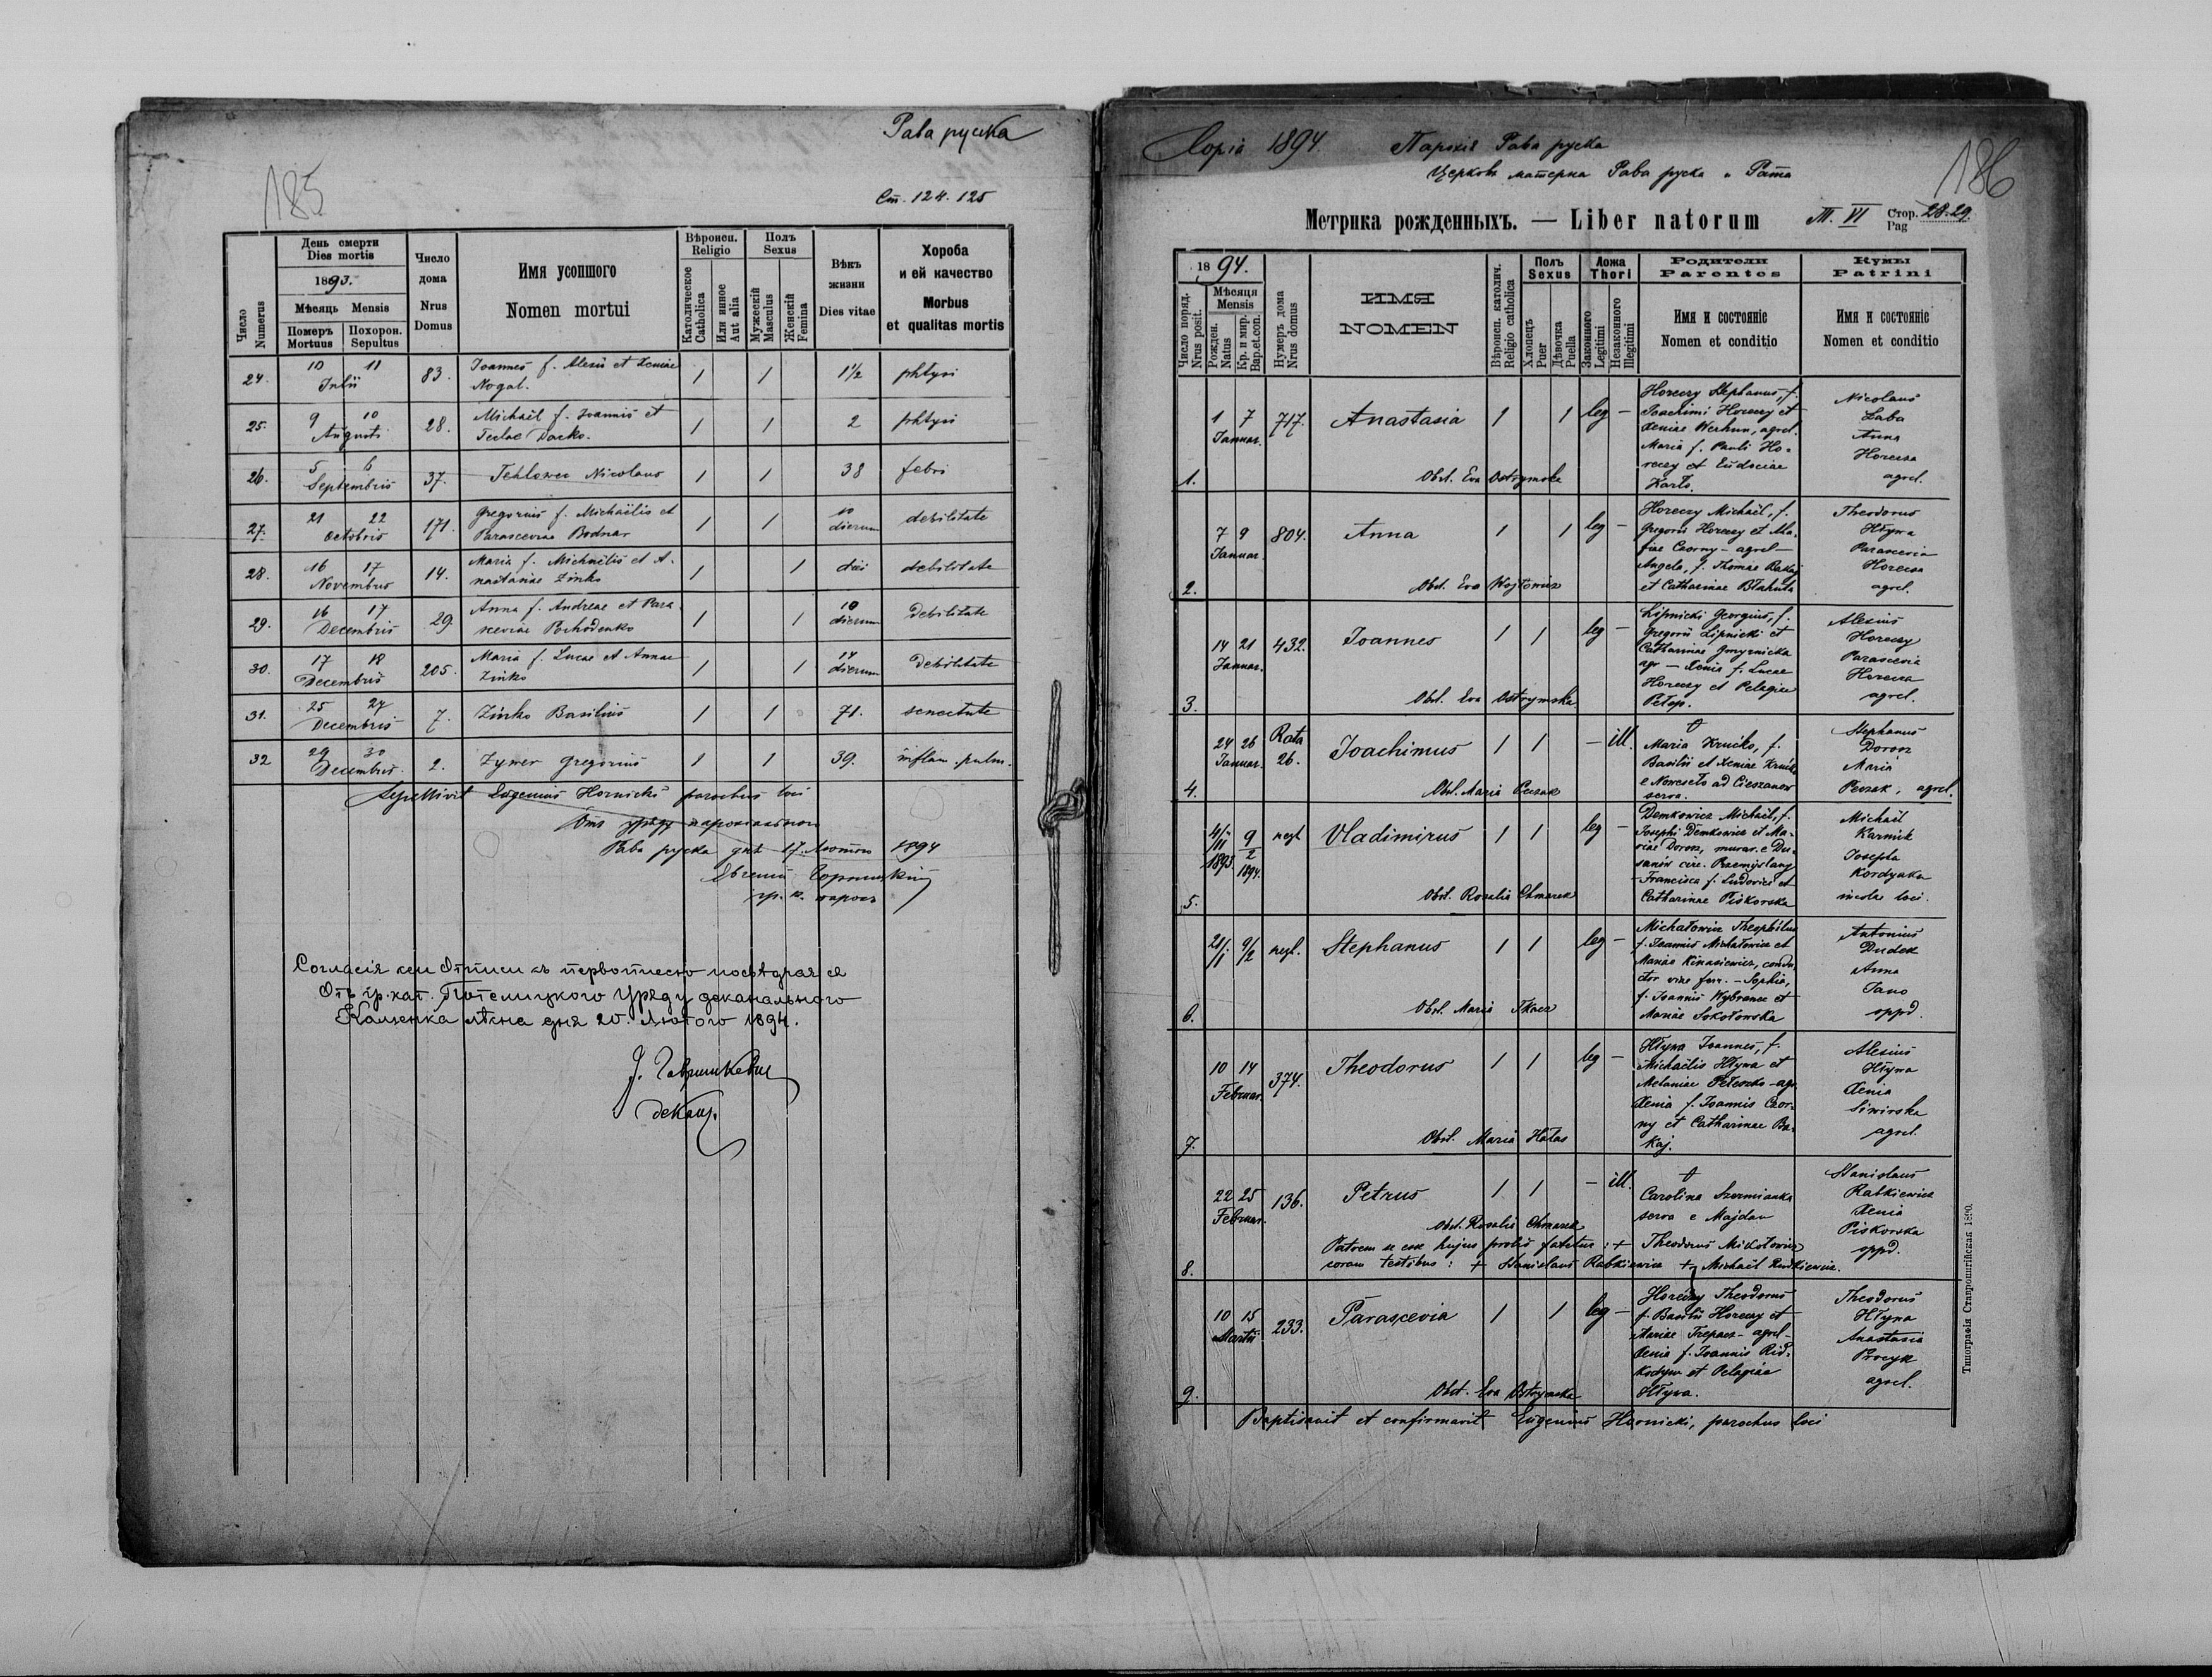 Рава руска
185
Ст. 124. 125
Число
Numerus
День смерти
Dies mortis
1893.
Мѣсяць Mensis
Померъ
Mortuus
Похорон.
Sepultus
Число
дома
Nrus
Domus
Имя усопшого
Nomen mortui
Вѣроисп.
Religio
Католическое
Catholica
Или инное
Aut alia
Полъ
Sexus
Мужескій
Masculus
Женскій
Femina
Вѣкъ
жизни
Dies vitae
Хороба
и ей качество
Morbus
et qualitas mortis
24. 10 11 Julii 83. Joannes f. Alexii et Xeniae
Nogal. 1 1 1½ phtysi
25. 9 10 Augusti 28. Michaël f. Joannis et
Teclae Dacko. 1 1 2 phtysi
26. 5 6 Septembris 37. Tehlowec Nicolaus 1 1 38 febri
27. 21 22 Octobris 171. Gregorius f. Michaëlis et
Parasceviae Bodnar 1 1 10 dierum debilitate
28. 16 17 Novembris 14. Maria f. Michaëlis et A-
nastasiae Zinko 1 1 diei debilitate
29. 16 17 Decembris 29. Anna f. Andreae et Para-
sceviae Pochodenko 1 1 10 dierum Debilitate
30. 17 18 Decembris 205. Maria f. Lucae et Annae
Zinko 1 1 14 dierum Debilitate
31. 25 27 Decembris 7. Zinko Basilius 1 1 71. senectute
32 29 30 Decembris. 2. Zywer Gregorius 1 1 39. inflam. pulm.
Sepellivit Eugenius Hornicki parochus loci
Отъ уряду парохіального
Рава руска дня 17 Лютого 1894
Евгеній Горницкій
гр. к. парохъ
Согласія сеи Отписи съ первописею посвѣдчая ся
Отъ гр. кат. Потелицкого Уряду деканального
Каменка лѣсна дня 20. Лютого 1894.
декан.
Copia 1894. Парохія Рава руска
Церковь матерна Рава руска и Рата
186
Метрика рожденныхъ. — Liber natorum Т. VI Стор. 28-29.
Pag
1894.
Число поряд.
Nrus posit.
Мѣсяця
Mensis
Рожден.
Natus
Кр. и мир.
Bap.et.con.
Нумеръ дома
Nrus domus
ИМЯ
NOMEN
Вѣроисп. католич.
Religio catholica
Полъ
Sexus
Хлопецъ
Puer
Дѣвочка
Puella
Ложа
Thori
Законного
Legitimi
Незаконного
Illegitimi
Родители
Parentes
Имя и состояніе
Nomen et conditio
Кумы
Patrini
Имя и состояніе
Nomen et conditio
1. 1 7 Januar. 717. Anastasia 1 1 leg —
Horeczy Stephanus, f.
Joachimi Horeczy et
Xeniae Werhun, agrel.
Maria f. Pauli Ho-
reczy et Eudociae
Karlo.
Nicolaus
Laba
Anna
Horecza
agrel.
Obst. Eva Ostrymska
2. 7 9 Januar. 804. Anna 1 1 leg —
Horeczy Michaël, f.
Gregorii Horeczy et Ma-
riae Czorny — agrel —
Angela, f. Thomae Bakaj
et Catharinae Błahuta
Theodorus
Hłyna
Parascevia
Horecza
agrel.
Obst. Eva Wojtowicz
3. 14 21 Januar. 432. Joannes 1 1 leg —
Lipnicki Georgius, f.
Gregorii Lipnicki et
Catharinae Gmyrnicka
agr — Xenia f. Lucae
Horeczy et Pelagiae
Alexius
Horeczy
Parascevia
Horecza
agrel.
Obst. Eva Ostrymska
4. 24 26 Januar. Rata 26. Joachimus 1 1 — ill.
Maria Kruczko, f.
Basilii et Xeniae Kruczko
e Nowesioło ad Cieszanow
serva.
Stephanus
Dorosz
Maria
Peczak, agrel.
Obst. Maria Peczak
5. 4/11 1893 9/2 1894. negl Vladimirus 1 1 leg —
Demkowicz Michaël, f.
Josephi Demkowicz et Ma-
riae Dorosz, murar. e Du-
sanów circ. Przemyslany
— Francisca f. Ludovici et
Catharinae Piskorska
Michaël
Karnik
Josepha
Kordynka
incolae loci.
Obst. Rosalia Chmarek
6. 21/1 9/2 negl. Stephanus 1 1 leg —
Michałowicz Theophilus
f. Joannis Michałowicz et
Mariae Kinasiewicz, condu-
ctor viae ferr. — Sophia,
f. Joannis Wybranec et
Mariae Sokołowska
Antonius
Dudek
Anna
Jano
oppd.
Obst. Maria Tkacz
7. 10 14 Februar. 374. Theodorus 1 1 leg —
Hłyna Joannes, f.
Michaëlis Hłyna et
Melaniae Peteszko — agr.
Xenia f. Joannis Czor-
ny et Catharinae Ba-
kaj.
Alexius
Hłyna
Xenia
Siwirska
agrel.
Obst. Maria Hałas
8. 22 25 Februar. 136. Petrus 1 1 — ill.
Carolina Szermianka
serva e Majdan
Stanislaus
Rabkiewicz
Xenia
Piskorska
oppd.
Obst. Rosalia Chmarek
Patrem se esse hujus prolis fatetur: + Theodorus Mikołowicz
coram testibus: + Stanislaus Rabkiewicz + Michaël Rudkiewicz.
9. 10 15 Martii 233. Parascevia 1 1 leg —
Horeczy Theodorus
f. Basilii Horeczy et
Mariae Trepacz — agrel —
Xenia f. Joannis Rid-
kodym et Pelagiae
Hłyna.
Theodorus
Hłyna
Anastasia
Procyk
agrel.
Obst. Eva Ostrymska
Baptisavit et confirmavit Eugenius Hornicki, parochus loci
Типографія Ставропигійская 1890.